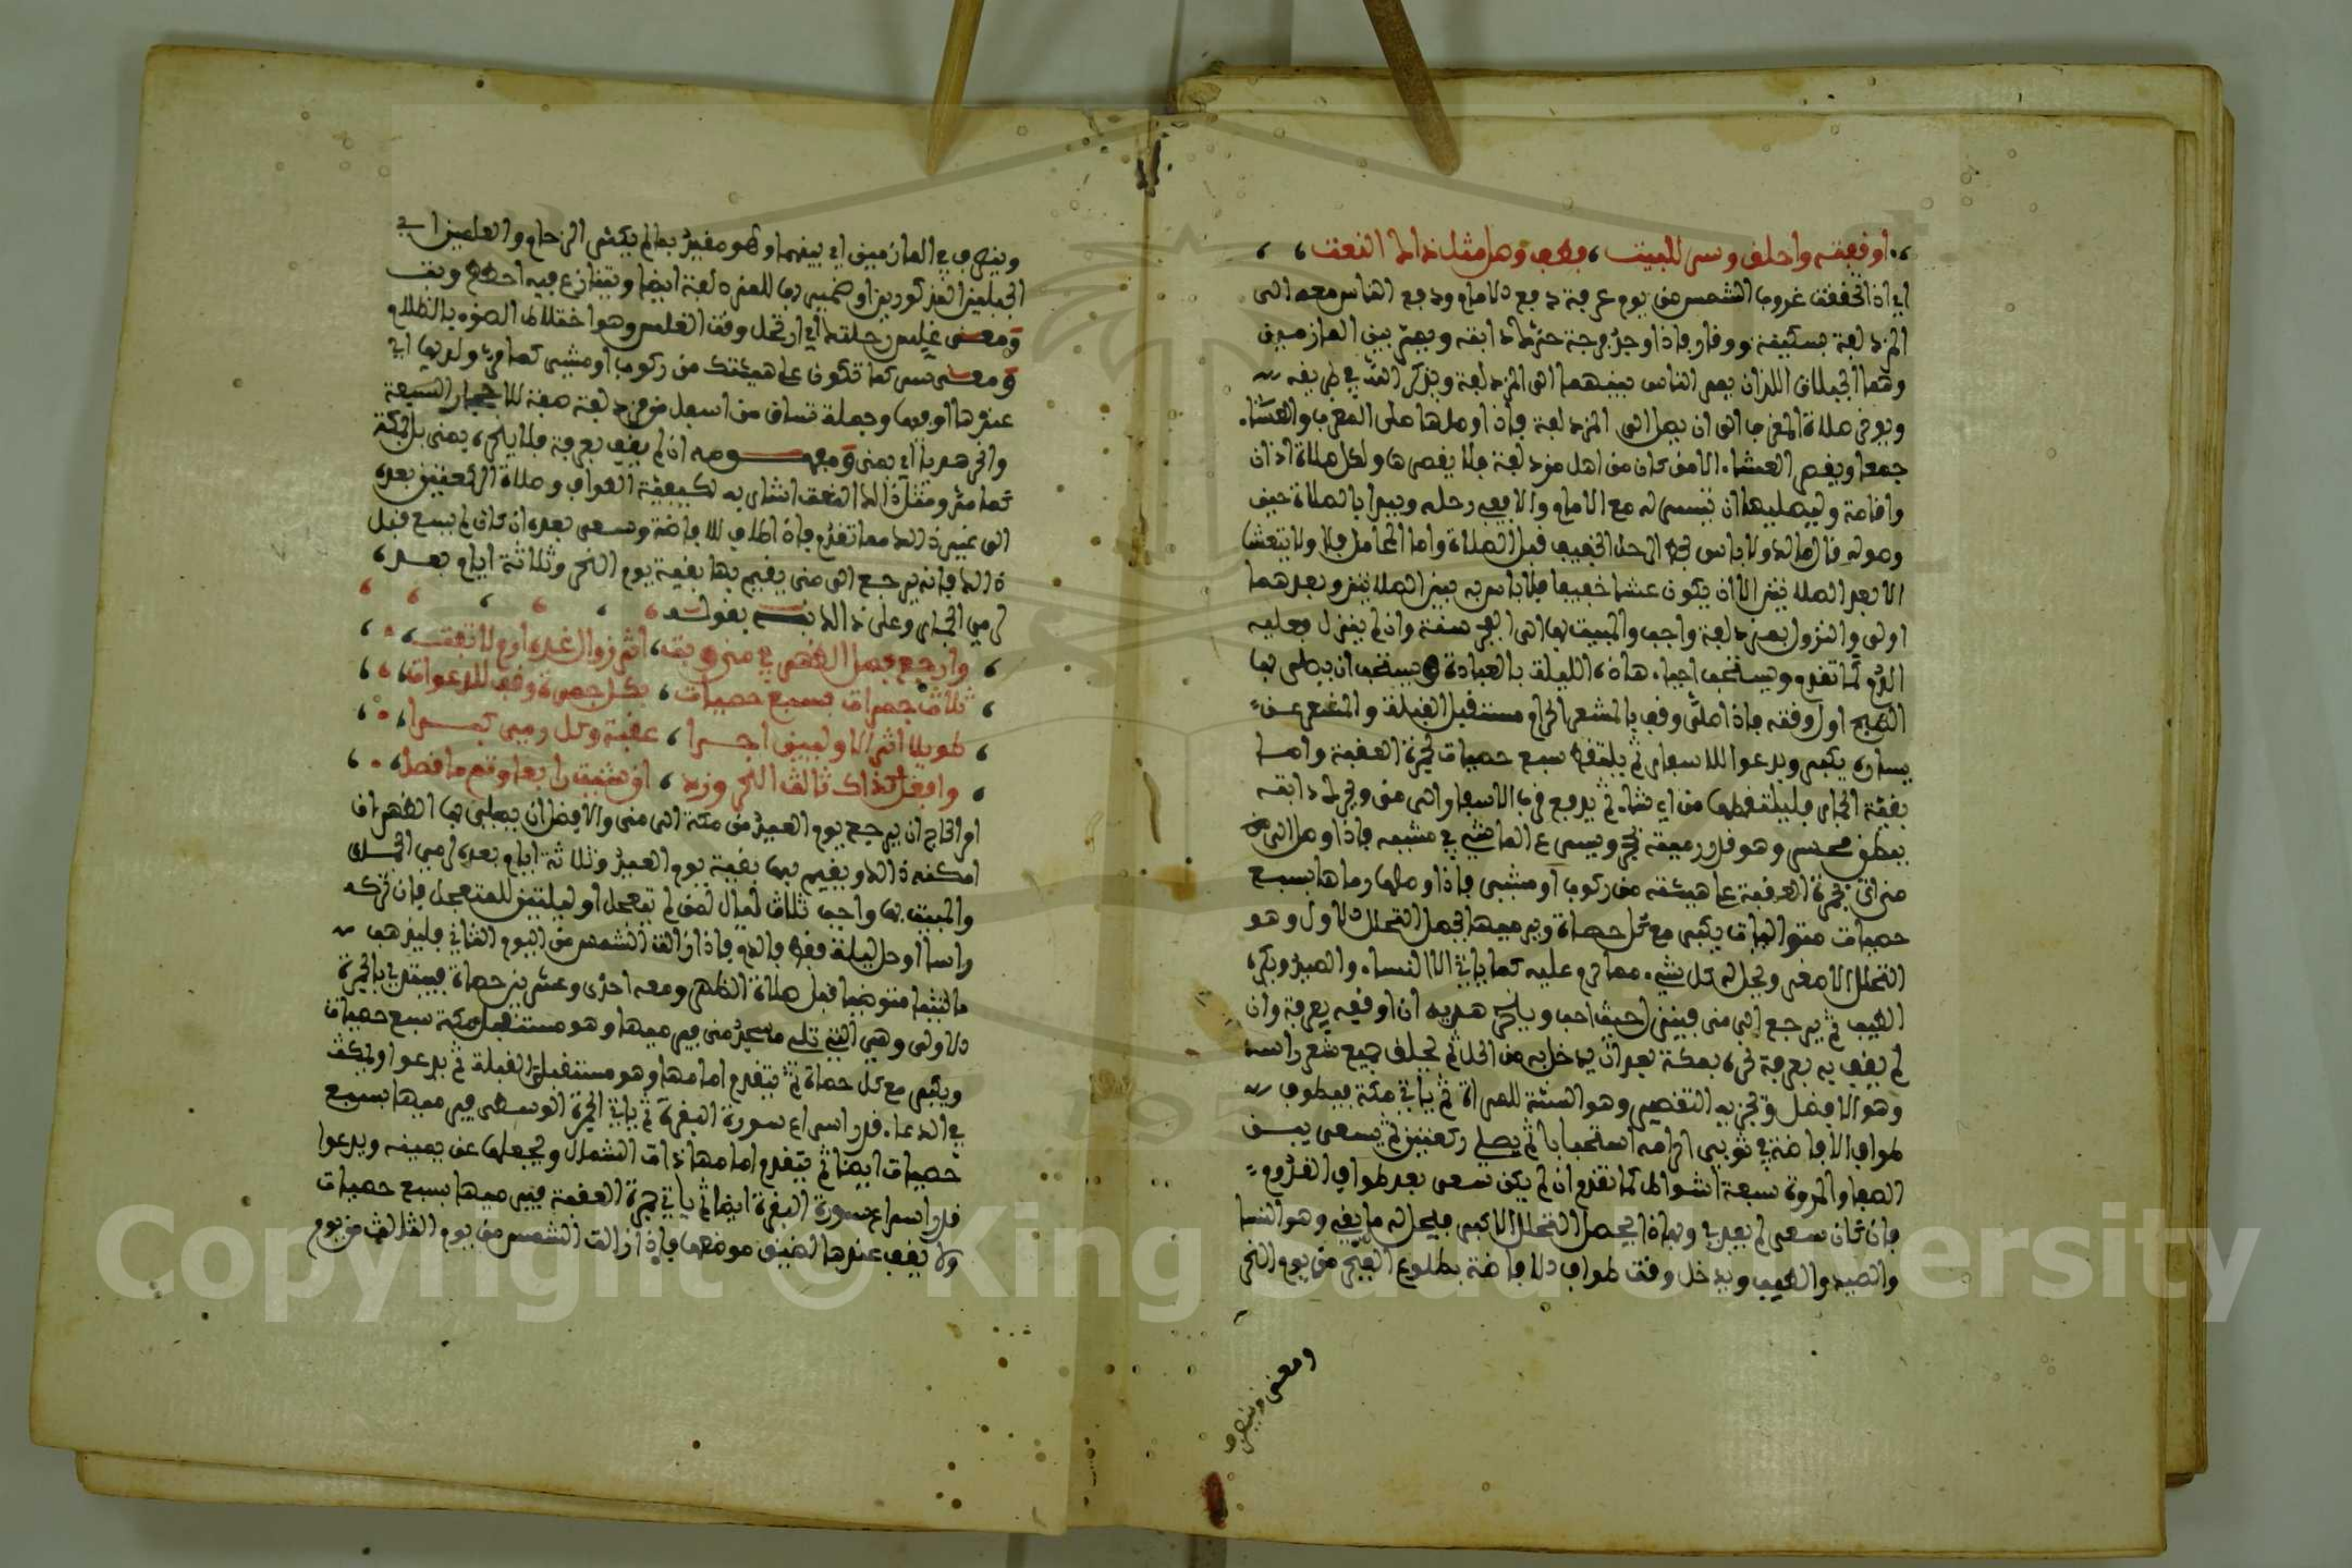 ، اوفعته واحلق وسر للبيت ، فطف وصل مثل ذاك النعت ، ،
اي اذا تحققت غروب الشمس من يوم عرفة دفع الامام ودفع الناس معه الى
المزدلفة بسكينة ووقار فاذا وجد فرجة حرك دابته ويمر بين المازمين
وهما الجبلان اللذان يمر الناس بينهما الى المزدلفة ويذكر الله في طريقه
ويوخر صلاة المغرب الى ان يصل الى المزدلفة فاذا وصلها صلى المغرب والعشا
جمعا ويقصر العشا الا من كان من اهل مزدلفة فلا يقصرها ولكل صلاة اذان
واقامة وليصليها ان تيسر له مع الامام والا ففي رحله ويبدا بالصلاة حين
وصوله قال مالك ولا باس بحط الرحل الخفيف قبل الصلاة واما المحامل فلا ولا يتعشا
الا بعد الصلاتين الا ان يكون عشا خفيفا فلا باس به بين الصلاتين وبعدهما
اولى والنزول بمزدلفة واجب والمبيت بها الى الفجر سنة وان لم ينزل فعليه
الدم كما تقدم ويستحب احيا هاذه الليلة بالعبادة ويستحب ان يصلى بها
الصبح اول وقته فاذا صلى وقف بالمشعر الحرام مستقبل القبلة والمشعر عن
يساره يكبر ويدعوا للاسفار ثم يلتقط سبع حصيات لجمرة العقبة واما
بقية الجمار فليلتقطها من اي شا ثم يدفع قرب الاسفار الى منى ويحرك دابته
ببطن محسر وهو قدر رمية حجر ويسرع الماشي في مشيه فاذا وصل الى
منى اتى جمرة العقبة على هيئته من ركوب او مشي فاذا وصلها رماها بسبع
حصيات متواليات يكبر مع كل حصاة وبرميها يحصل التحلل الاول وهو
التحلل الاصغر ويحل له كل شيء مما حرم عليه كما ياتي الا النسا والصيد ويكره
الطيب ثم يرجع الى منى فينزل حيث احب وينحر هديه ان اوقفه بعرفة وان
لم يقف به بعرفة نحره بمكة بعد ان يدخل به من الحل ثم يحلق جميع شعر راسه
وهو الافضل ويجزيه التقصير وهو السنة للمراة ثم ياتي مكة فيطوف
طواف الافاضة في ثوبي احرامه استحبابا ثم يصلي ركعتين ثم يسعى بين
الصفا والمروة سبعة اشواط كما تقدم ان لم يكن سعى بعد طواف القدوم
فان كان سعى لم يعد وبهاذا يحصل التحلل الاكبر فيحل له ما بقي وهو النسا
والصيد والطيب ويدخل وقت طواف الافاضة بطلوع الفجر من يوم النحر
ومعنى وينصرف
وينصرف في المازمين اي بينهما وهو مقيد بما لم يكثر الزحام والعلمين اي
الجبلين المذكورين وضمير بها للمزدلفة ايضا ويتنازع فيه احطط وبت
ومعنى غلس رحلتك اي ارتحل وقت الغلس وهو اختلاط الضوء بالظلام
ومعنى سر كما تكون على هيئتك من ركوب او مشي كما مر ولديها اي
عندها او فيها وجملة تساق من اسفل مزدلفة صفة للاحجار السبعة
وانحر هديا اي بمنى ومفهومه ان لم يقف بعرفة فلا ينحر بمنى بل بمكة
كما مر ومثل ذاك النعت اشار به لكيفية الطواف وصلاة الركعتين بعده
الى غير ذالك مما تقدم فاذا طاف للافاضة وسعى بعده ان كان لم يسع قبل
ذالك فانه يرجع الى منى يقيم بها بقية يوم النحر وثلاثة ايام بعده
لرمي الجمار وعلى ذالك نبه بقوله
، وارجع فصل الظهر في منى وبت ، اثر زوال غده ارم لا تفت ،
، ثلاث جمرات بسبع حصيات ، بكل جمرة وقف للدعوات ،
، طويلا اثر الاوليين اخرا ، عقبة وكل رمي كبرا ،
، وافعل كذاك ثالث النحر وزد ، ان شئت رابعا وتم ما قصد ،
امر الحاج ان يرجع يوم العيد من مكة الى منى والافضل ان يصلي بها الظهر ان
امكنه ذالك ويقيم فيها بقية يوم العيد وثلاثة ايام بعده لرمي الجمار
والمبيت بها واجب ثلاث ليال لمن لم يتعجل او ليلتين للمتعجل فان تركه
راسا او جل ليلة فقط فالدم فاذا زالت الشمس من اليوم الثاني فليذهب
ماشيا متوضيا قبل صلاة الظهر ومعه احدى وعشرين حصاة فيبتدي بالجمرة
الاولى وهي التي تلي مسجد منى فيرميها وهو مستقبل مكة بسبع حصيات
ويكبر مع كل حصاة ثم يتقدم امامها وهو مستقبل القبلة ثم يدعوا ويمكث
في الدعا قدر اسراع سورة البقرة ثم ياتي الجمرة الوسطى فيرميها بسبع
حصيات ايضا ثم يتقدم امامها ذات الشمال ويجعلها عن يمينه ويدعوا
قدر اسراع سورة البقرة ايضا ثم ياتي جمرة العقبة فيرميها بسبع حصيات
ولا يقف عندها لضيق موضعها فاذا زالت الشمس من يوم الثالث من يوم
Copyright © King Saud University
195